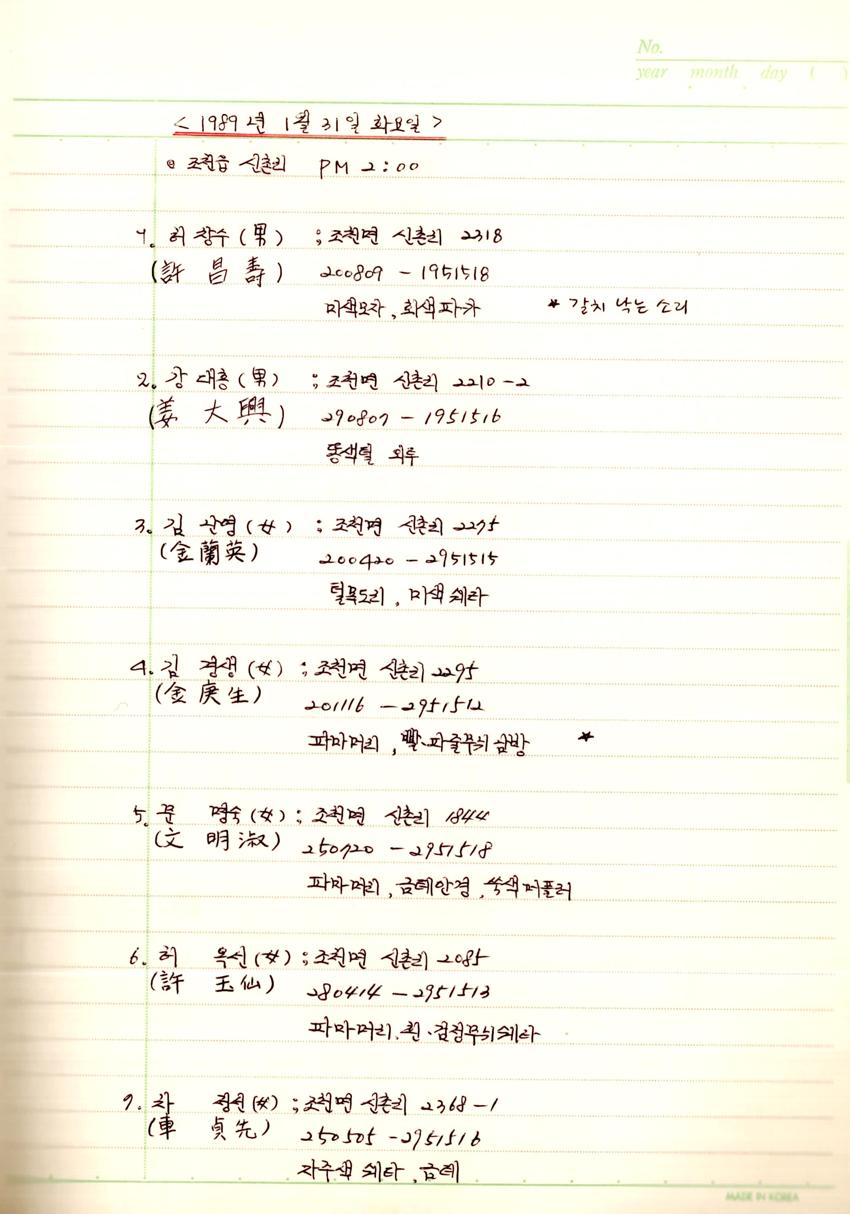 No.
year month day ( )
< 1989년 1월 31일 화요일 >
조천읍 신촌리 PM 2:00
1. 허창수 (男) ; 조천면 신촌리 2318
(許昌壽) 200809 - 1951518
미색모자, 회색파카 * 갈치 낚는 소리
2. 강대흥 (男) ; 조천면 신촌리 2210-2
(姜大興) 290807 - 1951516
똥색털 외투
3. 김난영 (女) ; 조천면 신촌리 2275
(金蘭英) 200420 - 2951515
털목도리, 미색 쉐타
4. 김경생 (女) ; 조천면 신촌리 2295
(金庚生) 201116 - 2951512
파마머리, 빨·파줄무늬 남방 *
5. 문명숙 (女) ; 조천면 신촌리 1844
(文明淑) 250720 - 2951518
파마머리, 금테안경, 쑥색머플러
6. 허옥선 (女) ; 조천면 신촌리 2085
(許玉仙) 280414 - 2951513
파마머리, 흰·검점무늬쉐타
7. 차정선 (女) ; 조천면 신촌리 2368-1
(車貞先) 250505 - 2951516
자주색 쉐타, 금테
MADE IN KOREA